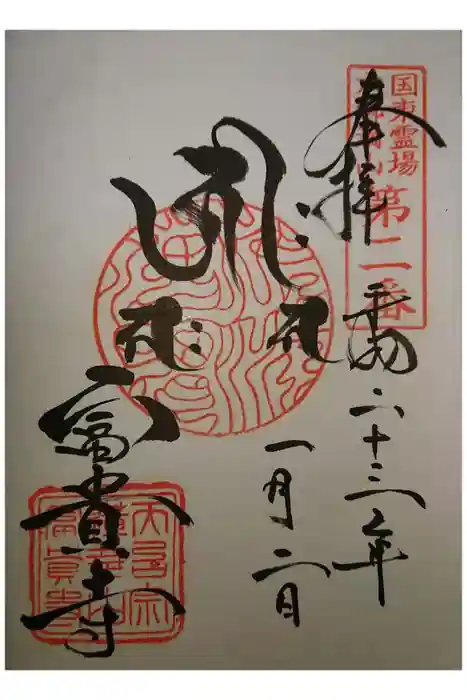 国東霊場
第二番
奉拝
平成二十三年
一月二日
富貴寺
天台宗
富貴寺